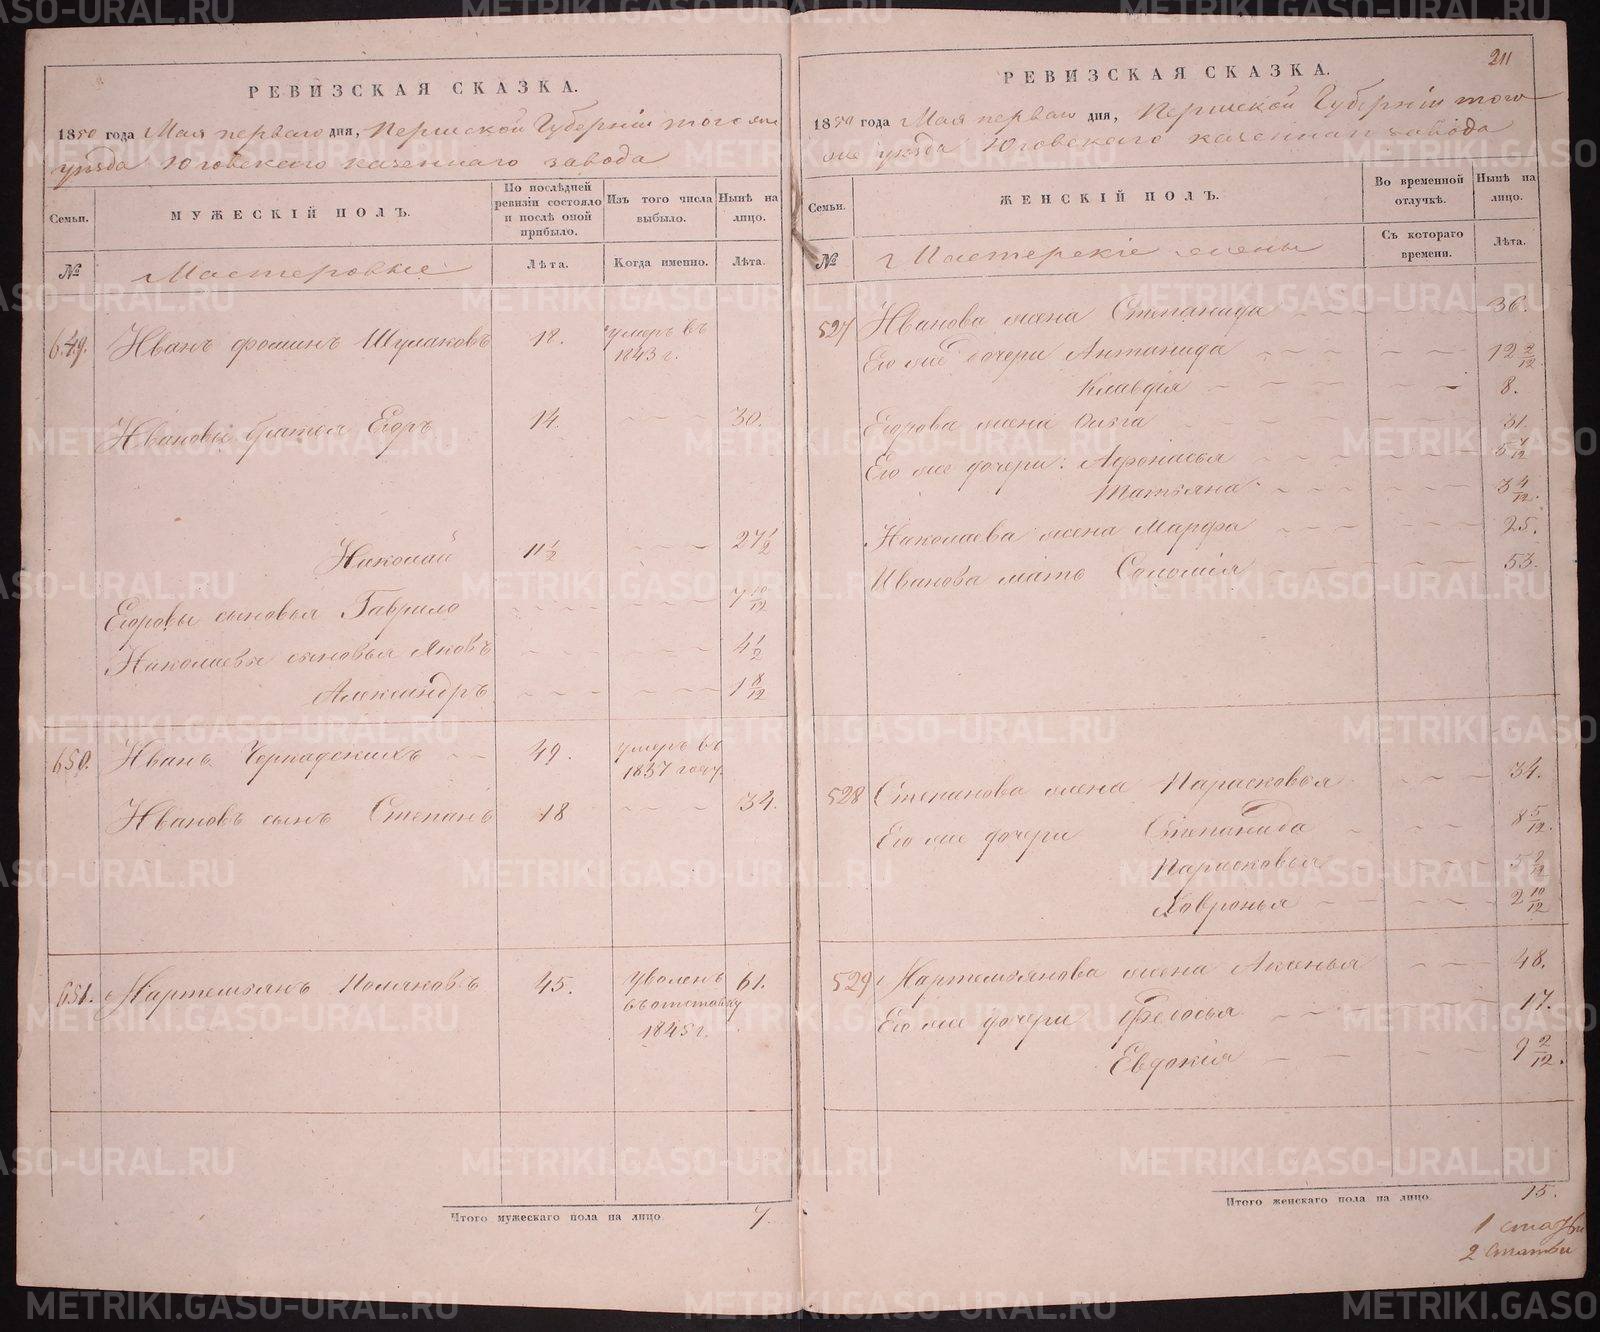 РЕВИЗСКАЯ СКАЗКА.
1850 года Мая перваго дня, Пермской Губерніи того же
уѣзда Юговскаго казеннаго завода
Семьи.
МУЖЕСКІЙ ПОЛЪ.
По послѣдней ревизіи состояло и послѣ оной прибыло.
Изъ того числа выбыло.
Нынѣ на лицо.
№
Мастеровые
Лѣта.
Когда именно.
Лѣта.
649. Иванъ Фоминъ 18. умеръ въ
1843 г.
Ивановы братья Егоръ 14. 30.
Николай 11 1/2 27 1/2
Егоровы сыновья Гаврило 7 10/12
Николаевы сыновья Яковъ 4 1/2
Александръ 1 8/12
650. Иванъ 49. умеръ въ
1837 году.
Ивановъ сынъ Степанъ 18 34.
651. Мартемьянъ Поляковъ 45. уволенъ 61.
въ отставку
1845 г.
Итого мужескаго пола на лицо. 7.
211
РЕВИЗСКАЯ СКАЗКА.
1850 года Мая перваго дня, Пермской Губерніи того
же уѣзда Юговскаго казеннаго завода
Семьи.
ЖЕНСКІЙ ПОЛЪ.
Во временной отлучкѣ.
Нынѣ на лицо.
№
Мастерскіе жены
Съ котораго времени.
Лѣта.
527 Иванова жена Степанида 36.
Его же дочери Антанида 12 2/12
Клавдія 8.
Егорова жена Ольга 31.
Его же дочери: Афонасья 5 7/12
Татьяна 3 4/12.
Николаева жена Марфа 25.
Иванова мать Соломія 53.
528 Степанова жена Парасковья 34.
Его же дочери Степанида 8 5/12.
Парасковья 5 2/12
Хавронья 2 10/12
529 Мартемьянова жена Аксенья 48.
Его же дочери Федосья 17.
Евдокія 9 2/12.
Итого женскаго пола на лицо. 15.
METRIKI.GASO-URAL.RU